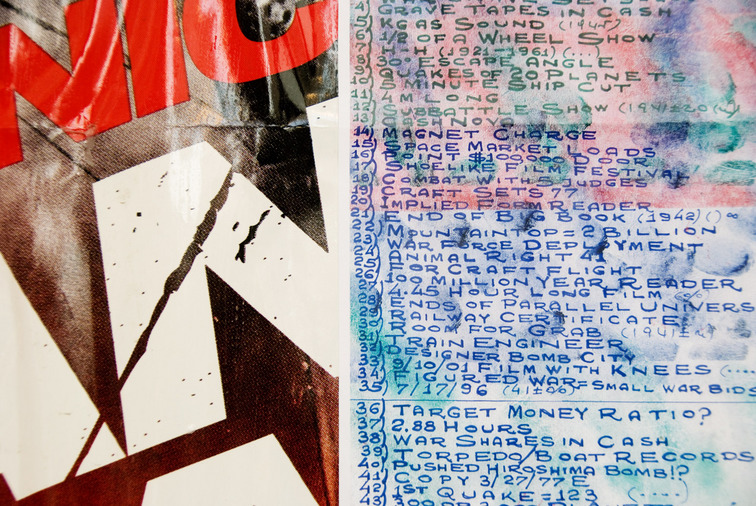 NIC
GRAVE TAPES IN CASH
GAS SOUND (194
OF A WHEEL SHOW
H (1921-1961) (...)
ESCAPE ANGLE
QUAKES OF 20 PLANETS
SHIP CUT
LONG
SHOW (1941±20
14) MAGNET CHARGE
15) SPACE MARKET LOADS
16) DOOR
17) SHOE LIKE FILM FESTIVAL
18) COMBAT WITH JUDGES
19) CRAFT SETS 77
20) IMPLIED FORM READER
21) END OF BIG BOOK (1942)()∞
22) MOUNTAIN TOP=2 BILLION
23) WAR FORCE DEPLOYMENT
24) ANIMAL RIGHT 4
25) FOR CRAFT FLIGHT
26) MILLION YEAR READER
27) HOUR LONG FILM
28) ENDS OF PARALLEL UNIVERS
29) RAILWAY CERTIFICATE
30) ROOM FOR GRAB (1941±
31) TRAIN ENGINEER
32) DESIGNER BOMB CITY
33) 9/10/01 FILM WITH KNEES (....
34) FIGURED WAR=SMALL WAR BIDS
35) 7/17/96 (41±%)
36) TARGET MONEY RATIO?
37) 2.88 HOURS
38) WAR SHARES IN CASH
39) TORPEDO BOAT RECORDS
40) PUSHED HIROSHIMA BOMB!?
41) COPY 3/27/77 E
42) 1ST QUAKE=123 (....)
43)